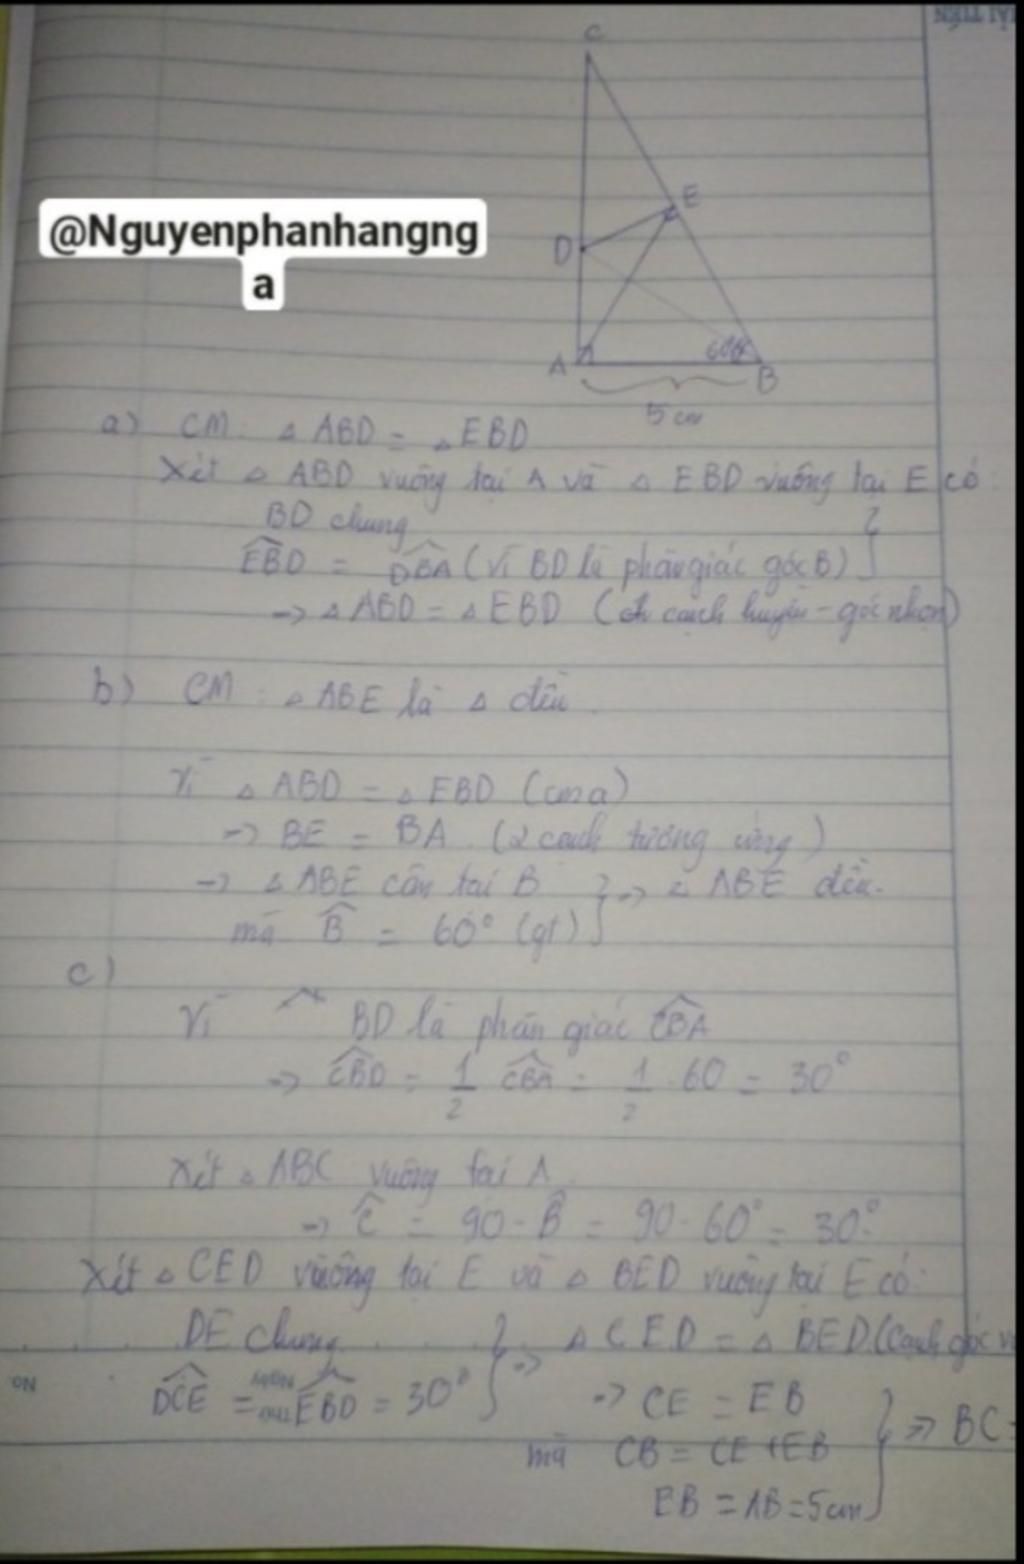 HẢI TIẾN
C
E
D
A
60°
B
5 cm
@Nguyenphanhangng
a
a) CM: △ ABD = △ EBD
Xét △ ABD vuông tại A và △ EBD vuông tại E có:
BD chung
EBD = DBA (Vì BD là phân giác góc B)
→ △ ABD = △ EBD (ch cạnh huyền - góc nhọn)
b) CM: △ ABE là △ đều.
Vì △ ABD = △ EBD (cma)
→ BE = BA. (2 cạnh tương ứng)
→ △ ABE cân tại B } → △ ABE đều.
mà B̂ = 60° (gt)
c)
Vì BD là phân giác CBA
→ CBD = 1/2 CBA = 1/2 . 60 = 30°
Xét △ ABC vuông tại A
→ Ĉ = 90 - B̂ = 90 - 60° = 30°
Xét △ CED vuông tại E và △ BED vuông tại E có:
DE chung } → △ CED = △ BED (Cạnh góc v
DCE = EBD = 30° → CE = EB
mà CB = CE + EB } => BC =
EB = AB = 5cm
No
Ngày
Thứ